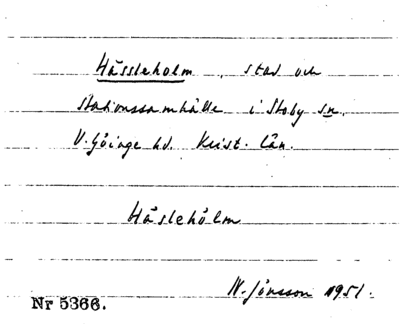 Hässleholm, stad och
stationssamhälle i Stoby sn.
V. Göinge hd. Krist. län.
Häslehålm
W. Jönsson 1951.
Nr 5366.